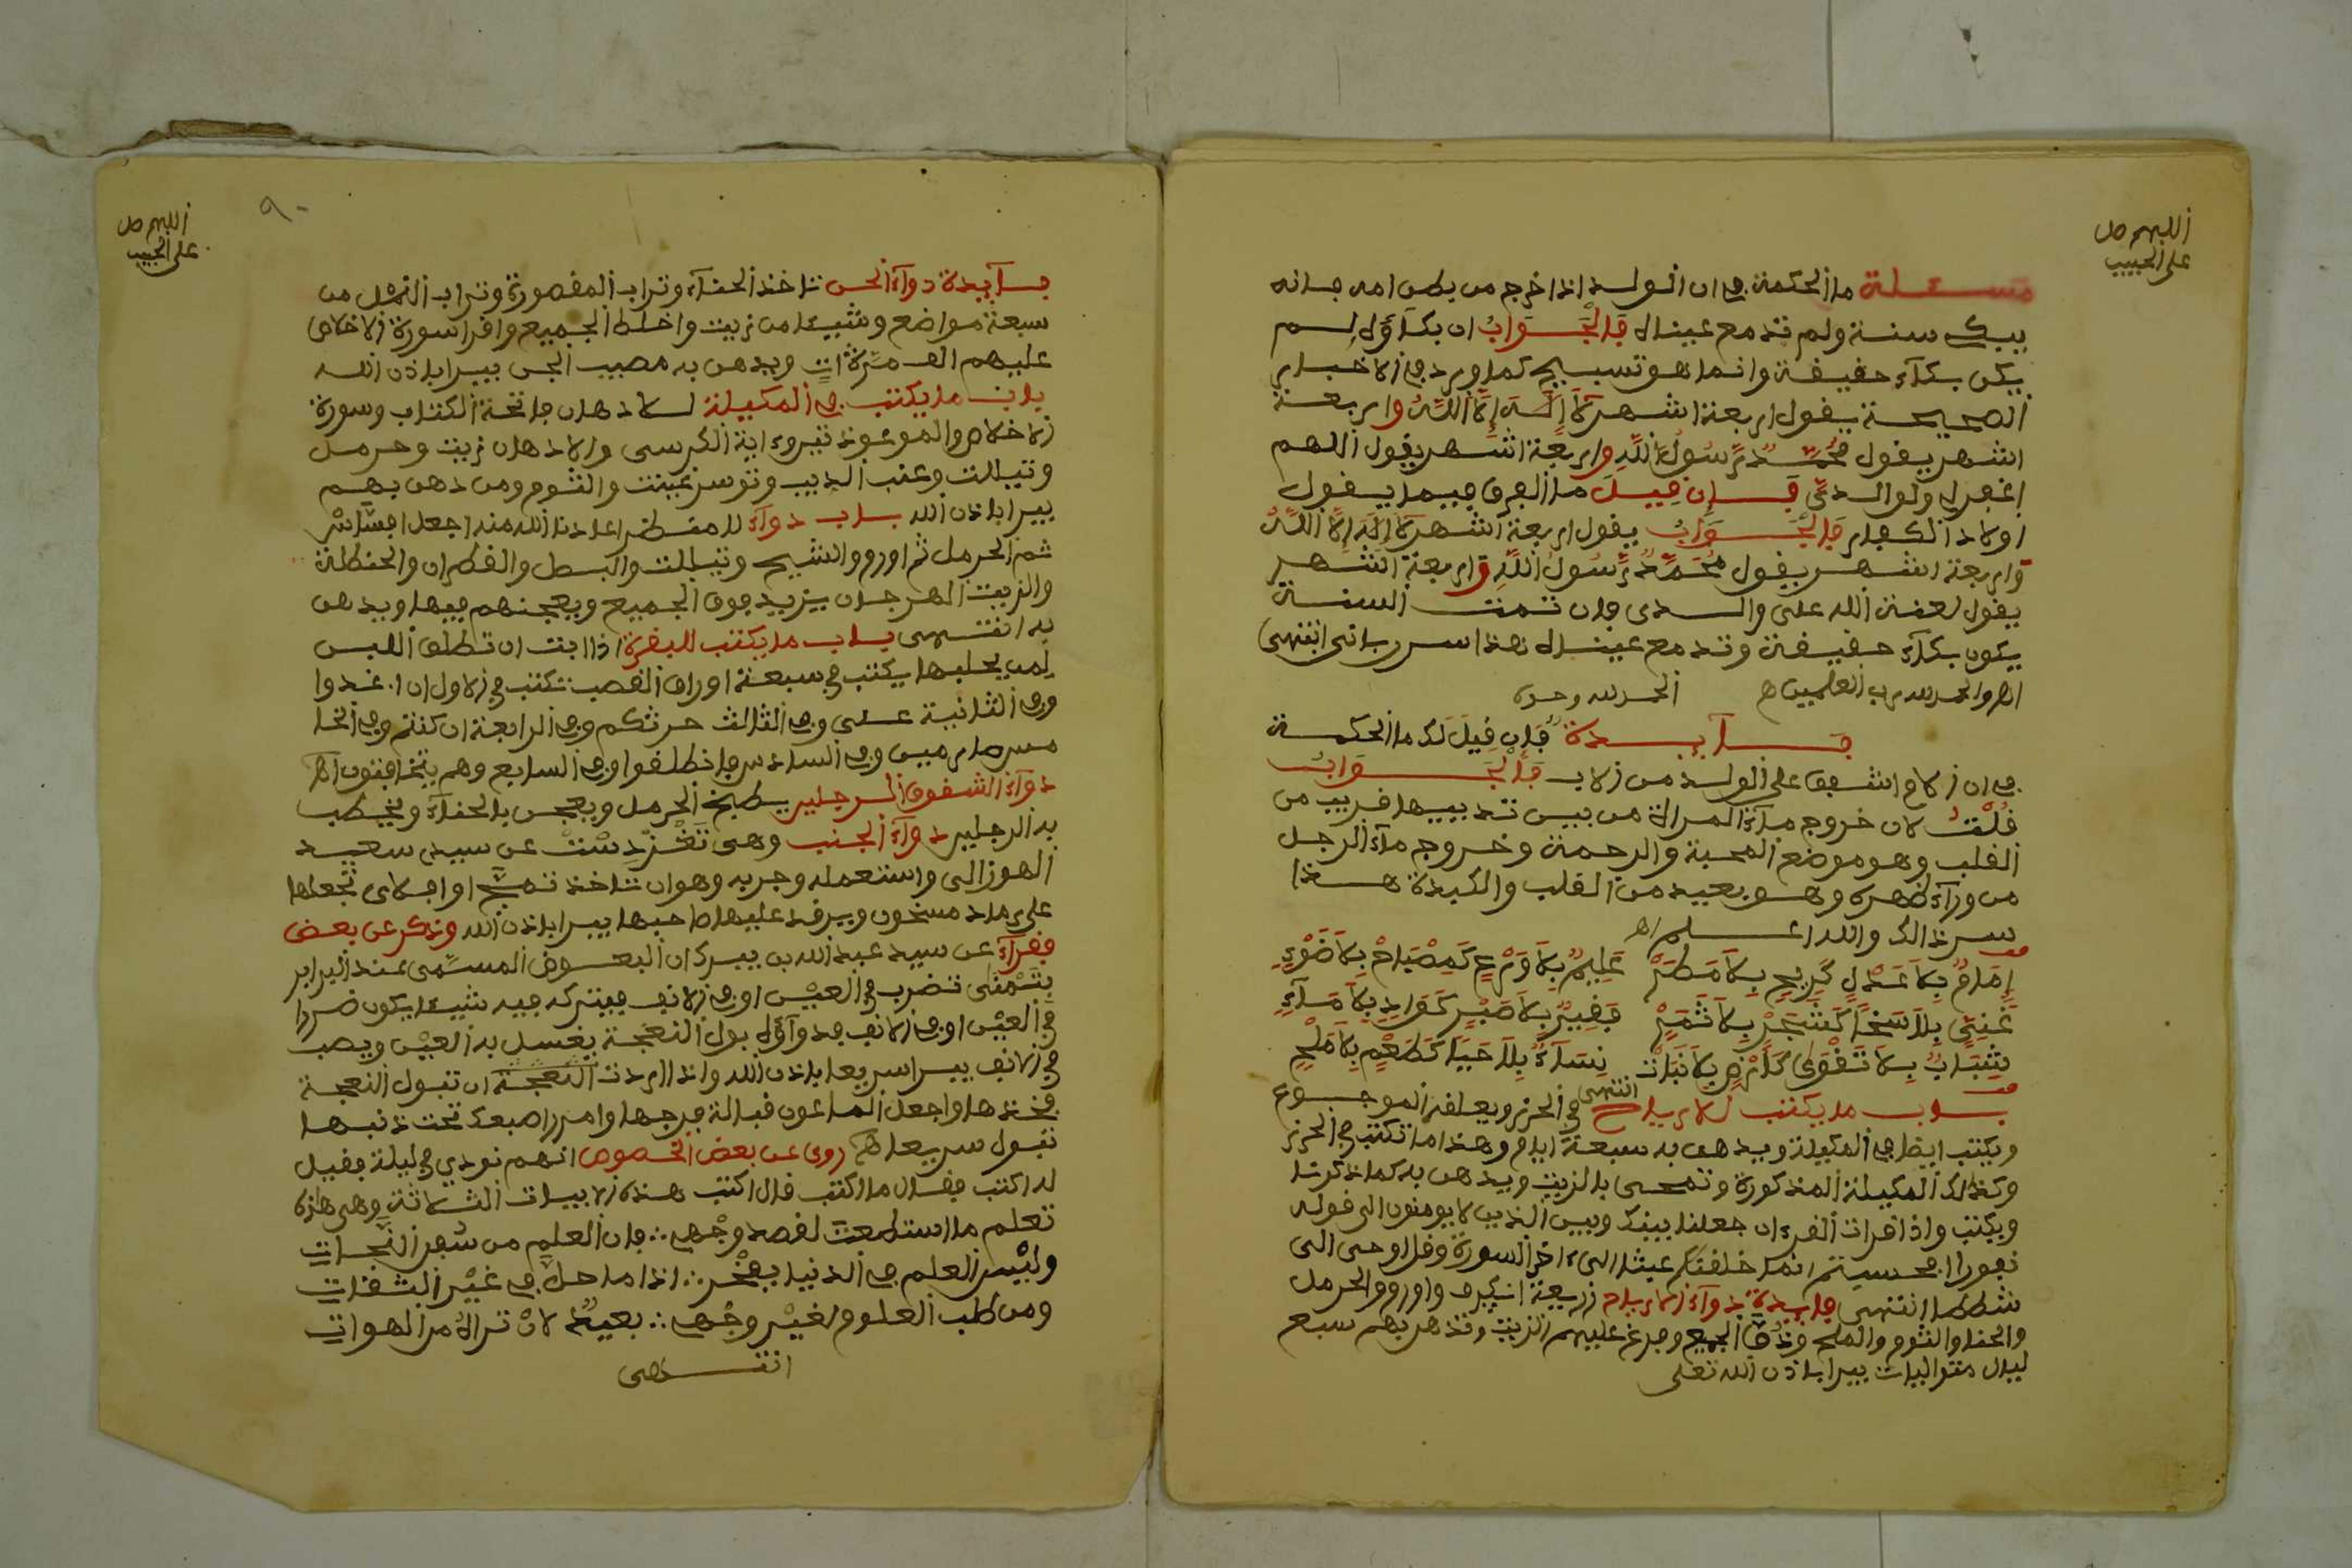 اللهم صل
على الحبيب
مسئلة ما الحكمة في ان الولد اذا خرج من بطن امه فانه
يبك سنة ولم تدمع عيناه فالجواب ان بكآؤه لم
يكن بكآء حقيقة وانما هو تسبيح كما ورد في الاخبار
الصحيحة يقول اربعة اشهر لا إله إلا الله واربعة
اشهر يقول محمد رسول الله واربعة اشهر يقول اللهم
اغفر لي ولوالدي فإن قيل ما الفرق فيما يقول
اولاد الكفار فالجواب يقول اربعة اشهر لا إله إلا الله
واربعة اشهر يقول محمد رسول الله واربعة اشهر
يقول لعنة الله على والدى فان تمت السنة
يكون بكآء حقيقة وتدمع عيناه هذا سر رباني انتهى
اهـ والحمد لله رب العلمين اهـ الحمد لله وحده
فآيدة فإن قيل لك ما الحكمة
في ان الام اشفق على الولد من الاب فالجواب
قلت لان خروج مآء المراة من بين ثدييها قريب من
القلب وهو موضع المحبة والرحمة وخروج مآء الرجل
من ورآء ظهره وهو بعيد من القلب والكبدة هذا
سر ذالك والله اعلم اهـ
إمام بلا عدل كريح بلا مطر عليم بلا ورع كمصباح بلا ضوء
غني بلا سخا كشجر بلا ثمر فقير بلا صبر كواد بلا مآء
شباب بلا تقوى كأرض بلا نبات نسآء بلا حيا كطعم بلا ملح
انتهى
باب ما يكتب للارياح في الحرز ويعلقه الموجوع
ويكتب ايضا في المكيلة ويدهن به سبعة ايام وهذا ما تكتب في الحرز
وكذالك المكيلة المذكورة وتمحى بالزيت ويدهن به كما ذكرنا
ويكتب واذا قرات القرءان جعلنا بينك وبين الذين لا يومنون الى قوله
نفورا افحسبتم انما خلقنكم عبثا الى ءاخر السورة وقل اوحى الى
شططا انتهى فايدة دوآء الارياح زريعة واوروم والحرمل
والحنا والثوم والملح ودق الجميع وفرغ عليهم الزيت وتدهن بهم سبع
ليال متواليات يبرا باذن الله تعلى
اللهم صل
على الحبيب
٩٠
فآيدة دوآء الجن تاخذ الحنآء وتراب المقصورة وتراب النمل من
سبعة مواضع وشيئا من زيت واخلط الجميع واقرا سورة الاخلاص
عليهم الف مرة ويدهن به مصيب الجن يبرا باذن الله
باب ما يكتب في المكيلة للادهان فاتحة الكتاب وسورة
الاخلاص والموعوذتين وءاية الكرسى والادهان زيت وحرمل
وعنب الذيب والثوم ومن دهن بهم
يبرا باذن الله باب دوآء اعاذنا الله منه
ثم الحرمل ثم اوروم والشيح والبصل والقطران والحنظلة
والزيت الهرجان يزيد فوق الجميع ويعجنهم فيها ويدهن
به انتهى باب ما يكتب للبقرة اذا ابت ان تطلق اللبن
لمن يحلبها يكتب في سبعة اوراق القصب تكتب في الاول ان اغدوا
وفي الثانية على وفي الثالث حرثكم وفي الرابعة ان كنتم وفي الخا
مس صارمين وفي السادس فانطلقوا وفي السابع وهم يتخافتون اهـ
دوآء الشقوق الرجلين يطبخ الحرمل ويعجن بالحنآء ويخضب
به الرجلين دوآء الجنب وهى عن سيدي سعيد
الهوزالى واستعمله وجربه وهو ان تاخذ تجعلها
على رماد مسخون ويرقد عليها صاحبها يبرا باذن الله وذكر عن بعض
فقرآء عن سيد عبد الله بن يبرك ان البعوض المسمى عند البرابر
تضرب في العين او في الانف فيترك فيه شيئا يكون ضررا
في العين او في الانف فدوآؤه بول النعجة يغسل به العين ويصب
في الانف يبرا سريعا باذن الله واذا اردت النعجة ان تبول النعجة
فخذها واجعل الماعون قبالة فرجها وامرر اصبعك تحت ذنبها
تبول سريعا اهـ روى عن بعض اللصوص انهم نودي في ليلة فقيل
له اكتب فقال ما اكتب قال اكتب هذه الابيات الثلاثة وهى هاذه
تعلم ما استطعت لقصد وجهي ∴ فان العلم من سفن النجات
وليس العلم في الدنيا بفخر ∴ اذا ما حل في غير الثقات
ومن طلب العلوم لغير وجهي ∴ بعيد لان تراه من الهوات
انتهى